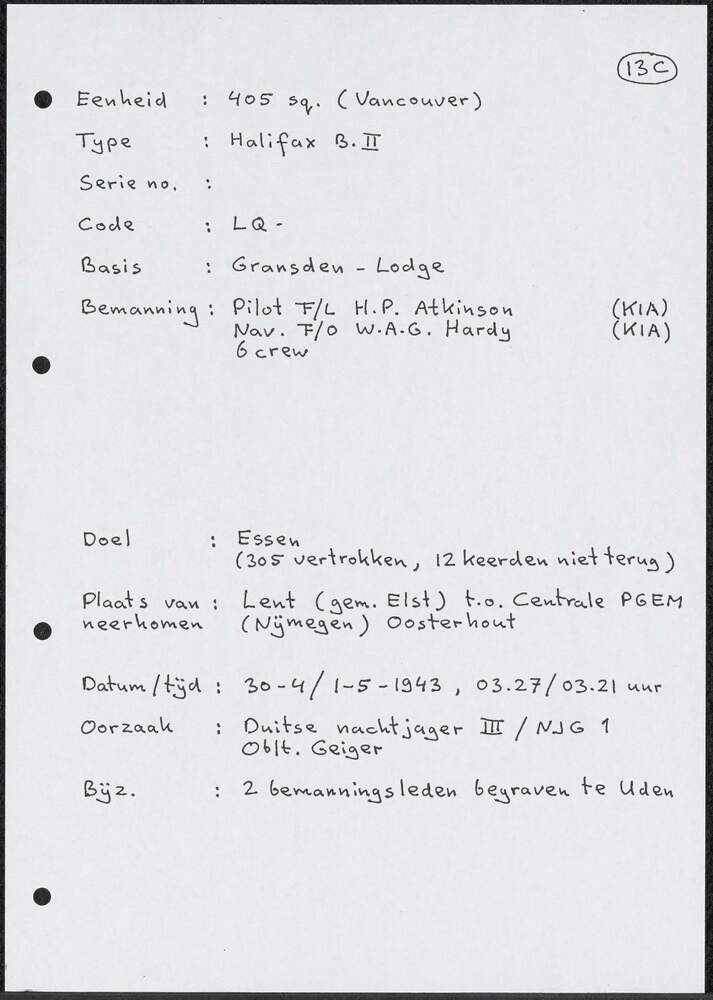 13C
Eenheid : 405 sq. (Vancouver)
Type : Halifax B.II
Serie no. :
Code : LQ -
Basis : Gransden - Lodge
Bemanning : Pilot F/L H.P. Atkinson (KIA)
Nav. F/O W.A.G. Hardy (KIA)
6 crew
Doel : Essen
(305 vertrokken, 12 keerden niet terug)
Plaats van : Lent (gem. Elst) t.o. Centrale PGEM
neerkomen (Nijmegen) Oosterhout
Datum/tijd : 30-4/1-5-1943, 03.27/03.21 uur
Oorzaak : Duitse nachtjager III / NJG 1
Oblt. Geiger
Bijz. : 2 bemanningsleden begraven te Uden